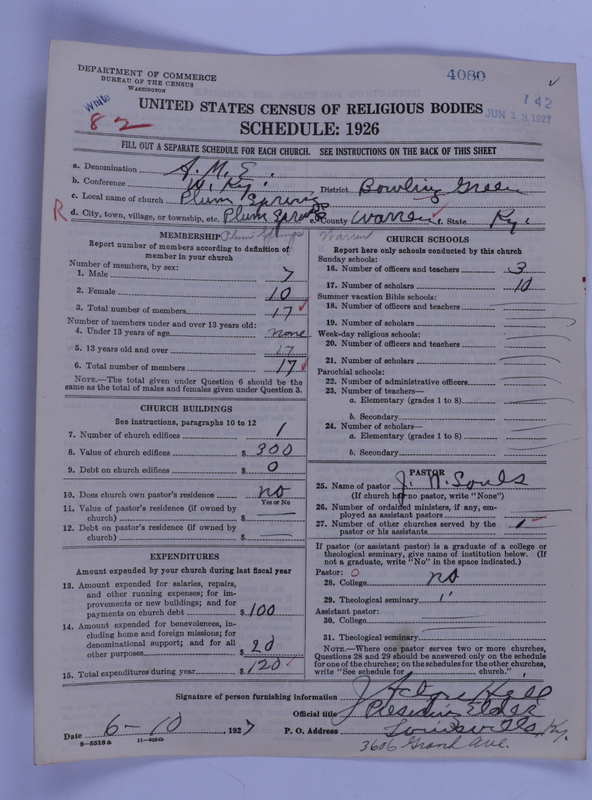 DEPARTMENT OF COMMERCE
BUREAU OF THE CENSUS
WASHINGTON
4080
White
82
142
JUN 13 1927
UNITED STATES CENSUS OF RELIGIOUS BODIES
SCHEDULE: 1926
FILL OUT A SEPARATE SCHEDULE FOR EACH CHURCH. SEE INSTRUCTIONS ON THE BACK OF THIS SHEET
a. Denomination A. M. E.
b. Conference W. Ky. District Bowling Green
c. Local name of church Plum Spring
R d. City, town, village, or township, etc. Plum Springs e. County Warren f. State Ky.
Plum Springs Warren
MEMBERSHIP
Report number of members according to definition of member in your church
Number of members, by sex:
1. Male 7
2. Female 10
3. Total number of members 17
Number of members under and over 13 years old:
4. Under 13 years of age none
5. 13 years old and over 17
6. Total number of members 17
NOTE.—The total given under Question 6 should be the same as the total of males and females given under Question 3.
CHURCH BUILDINGS
See instructions, paragraphs 10 to 12
7. Number of church edifices 1
8. Value of church edifices $ 300
9. Debt on church edifices $ 0
10. Does church own pastor's residence no
Yes or No
11. Value of pastor's residence (if owned by church) $
12. Debt on pastor's residence (if owned by church) $
EXPENDITURES
Amount expended by your church during last fiscal year
13. Amount expended for salaries, repairs, and other running expenses; for improvements or new buildings; and for payments on church debt $ 100
14. Amount expended for benevolences, including home and foreign missions; for denominational support; and for all other purposes $ 20
15. Total expenditures during year $ 120
CHURCH SCHOOLS
Report here only schools conducted by this church
Sunday schools:
16. Number of officers and teachers 3
17. Number of scholars 10
Summer vacation Bible schools:
18. Number of officers and teachers
19. Number of scholars
Week-day religious schools:
20. Number of officers and teachers
21. Number of scholars
Parochial schools:
22. Number of administrative officers
23. Number of teachers—
a. Elementary (grades 1 to 8)
b. Secondary
24. Number of scholars—
a. Elementary (grades 1 to 8)
b. Secondary
PASTOR
25. Name of pastor J. W. Souls
(If church has no pastor, write "None")
26. Number of ordained ministers, if any, employed as assistant pastors
27. Number of other churches served by the pastor or his assistants 1
If pastor (or assistant pastor) is a graduate of a college or theological seminary, give name of institution below. (If not a graduate, write "No" in the space indicated.)
Pastor: 0
28. College no
29. Theological seminary "
Assistant pastor:
30. College
31. Theological seminary
NOTE.—Where one pastor serves two or more churches, Questions 28 and 29 should be answered only on the schedule for one of the churches; on the schedules for the other churches, write "See schedule for church."
Signature of person furnishing information
Official title Presiding Elder
Date 6-10, 1927 P. O. Address Louisville Ky.
3606 Grand Ave.
8—5518a 11—9054b